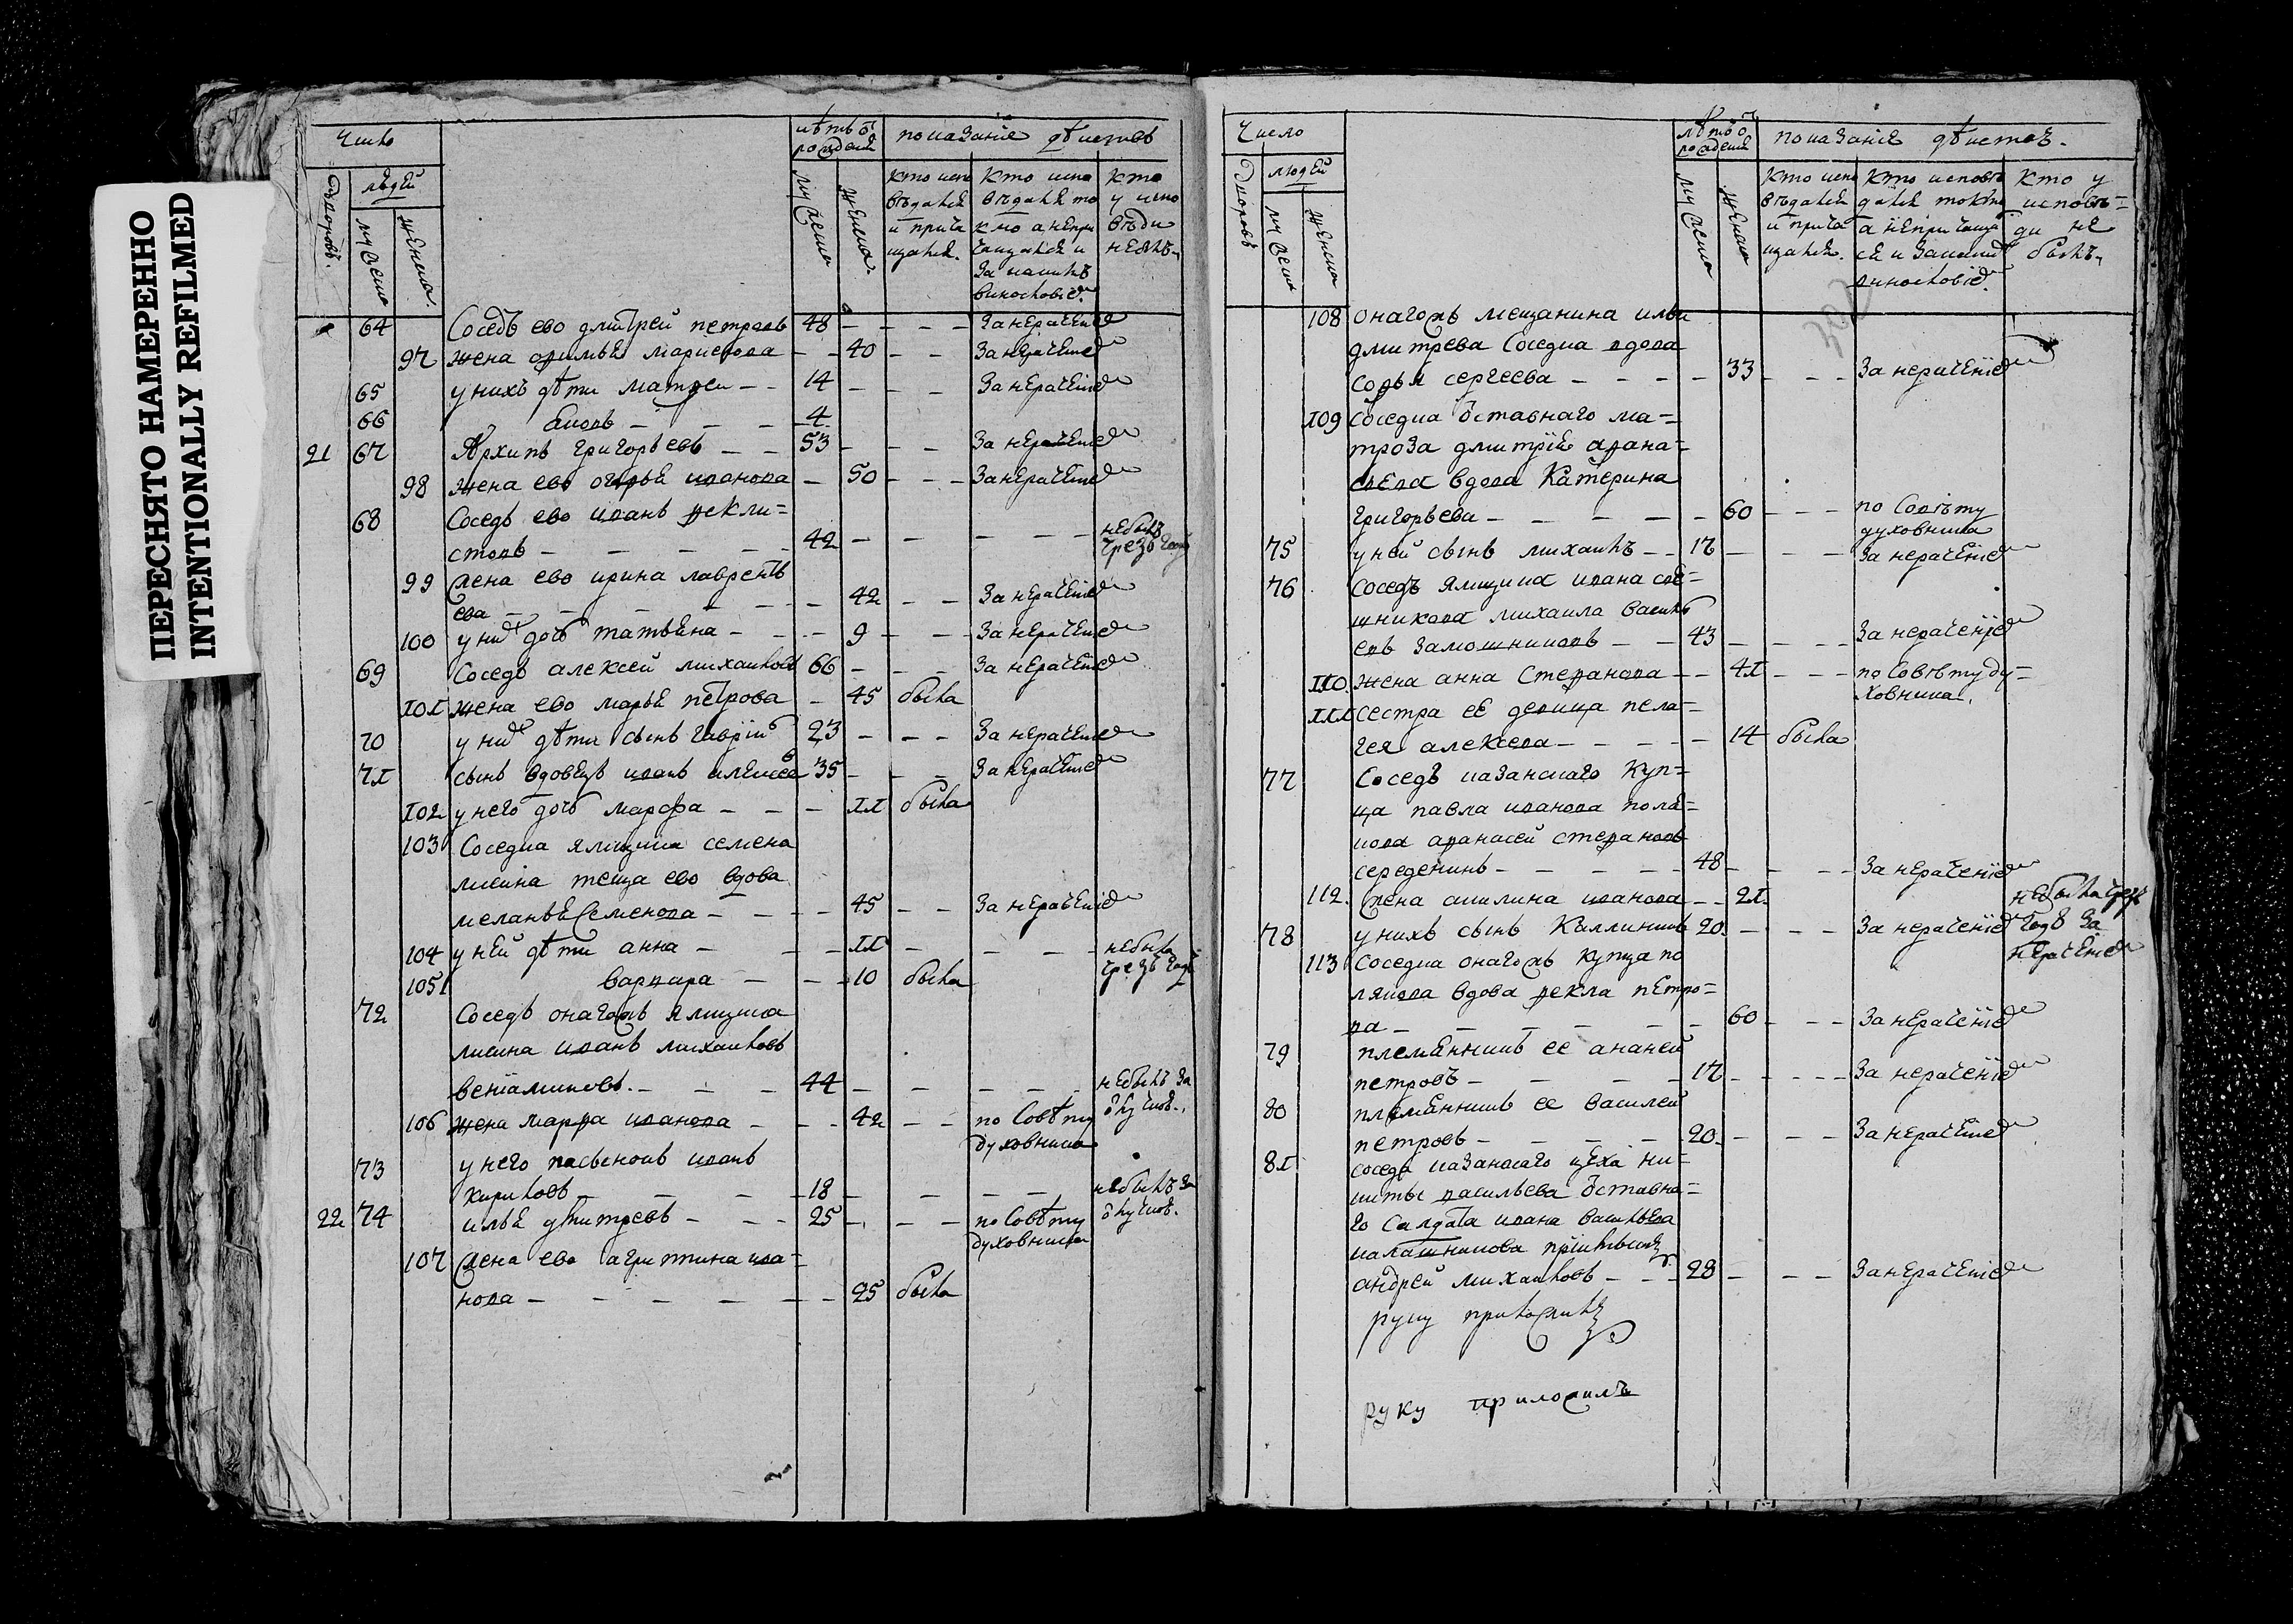 ПЕРЕСНЯТО НАМЕРЕННО
INTENTIONALLY REFILMED
Число
людей
дворовъ.
мужеска
женска.
лѣтъ ѿ
рожденія
мужеска
женска.
показаніе дѣиствъ
кто испо
вѣдался
и прича
щался.
кто испо
вѣдался то
кмо а непри
чащался и
за какимъ
винословіемъ
кто
у испо
вѣди
небылъ
64 Соседъ ево дмитрей петровъ 48 – – – – За нерачениемъ
97 жена – – 40 – – За нерачениемъ
65 у нихъ дѣти матвеи – – 14 – – – За нерачениемъ
66 яковъ – – – – 4
21 67 Архипъ Григорьевъ – – 53 – – – За нерачениемъ
98 жена ево иванова – 50 – – – За нерачениемъ
68 Соседъ ево иванъ фекли=
стовъ – – – – – 42 – – – – – небылъ
чрезъ годъ
99 жена ево ирина лаврентъ
ева – – – – – – 42 – – За нерачениемъ
100 у них дочь татьяна – – – – 9 – – – За нерачениемъ
69 Соседъ алексеи михаиловъ 66 – – – За нерачениемъ
101 жена ево марья петрова – 45 была
70 у них дѣти сынъ гаврiил 23 – – – За нерачениемъ
71 сынъ вдовецъ иванъ алексеевъ 35 – – – За нерачениемъ
102 у него дочь марфа – – – 11 была
103 Соседка ямщика семена
лисина теща ево вдова
меланья Семенова – – – – 45 – – За нерачениемъ
104 у ней дѣти анна – – – 11 – – – – небыла
чрезъ годъ
105 варвара – – – 10 была
72 Соседъ онагожъ ямщика
лисина иванъ михаиловъ
вениаминовъ. – – – 44 – – – – – небылъ за
ѿлучкою.
106 жена марфа иванова – – – 42 – – по Совѣту
духовника
73 у него пасынокъ иванъ
кириловъ – – – – 18 – – – – небылъ за
ѿлучкою.
22 74 илья дмитревъ – – – 25 – – – по Совѣту
духовника
107 жена ево агриппина ива=
нова – – – – – – 25 была
Число
людей
дворовъ
мужеска
женска
лѣтъ ѿ
рожденія
мужеска
женска
показаніе дѣиствъ.
кто испо
вѣдался
и прича
щался.
кто исповѣ
дался токмо
а непричаща
ся и закакимъ
винословіемъ.
кто у
исповѣ=
ди не
былъ
108 онагожъ мещанина ильи
дмитрева Соседка вдова
софья сергеева – – – – 33 – – – За нерачениемъ
109 Соседка ѿставнаго ма=
троза дмитрия афана=
сьева вдова Катерина
Григорьева – – – – – 60 – – – по Совѣту
духовника
75 у неи сынъ михаилъ – – 17 – – – За нерачениемъ
76 Соседъ ямщика ивана све=
шникова михаила василь
евъ замошниковъ – – 43 – – – – За нерачениемъ
110. жена анна Степанова – – 41 – – – по Совѣту ду=
ховника.
111 сестра ее девица пела=
гея алексева – – – – – 14 была
77 Соседъ казанскаго Куп=
ца павла иванова поля=
кова афанасеи степановъ
середенинъ – – – – – 48 – – – – За нерачениемъ
112. жена акилина иванова – – 21. небыла чрезъ
годъ за
нерачениемъ
78 у нихъ сынъ Каллиникъ 20. – – – За нерачениемъ
113 Соседка онагожъ купца по
лякова вдова фекла петро=
ва – – – – – – 60 – – – За нерачениемъ
79 племянникъ ее ананеи
петровъ – – – – 17 – – – – За нерачениемъ
80 племянникъ ее василеи
петровъ – – – – 20. – – – За нерачениемъ
81 соседъ казанскаго цеха ни=
киты васильева ѿставна=
го Салдата ивана васильева
калашникова приемышъ
андрей михаиловъ – – 28 – – – За нерачениемъ
руку приложилъ
руку приложилъ